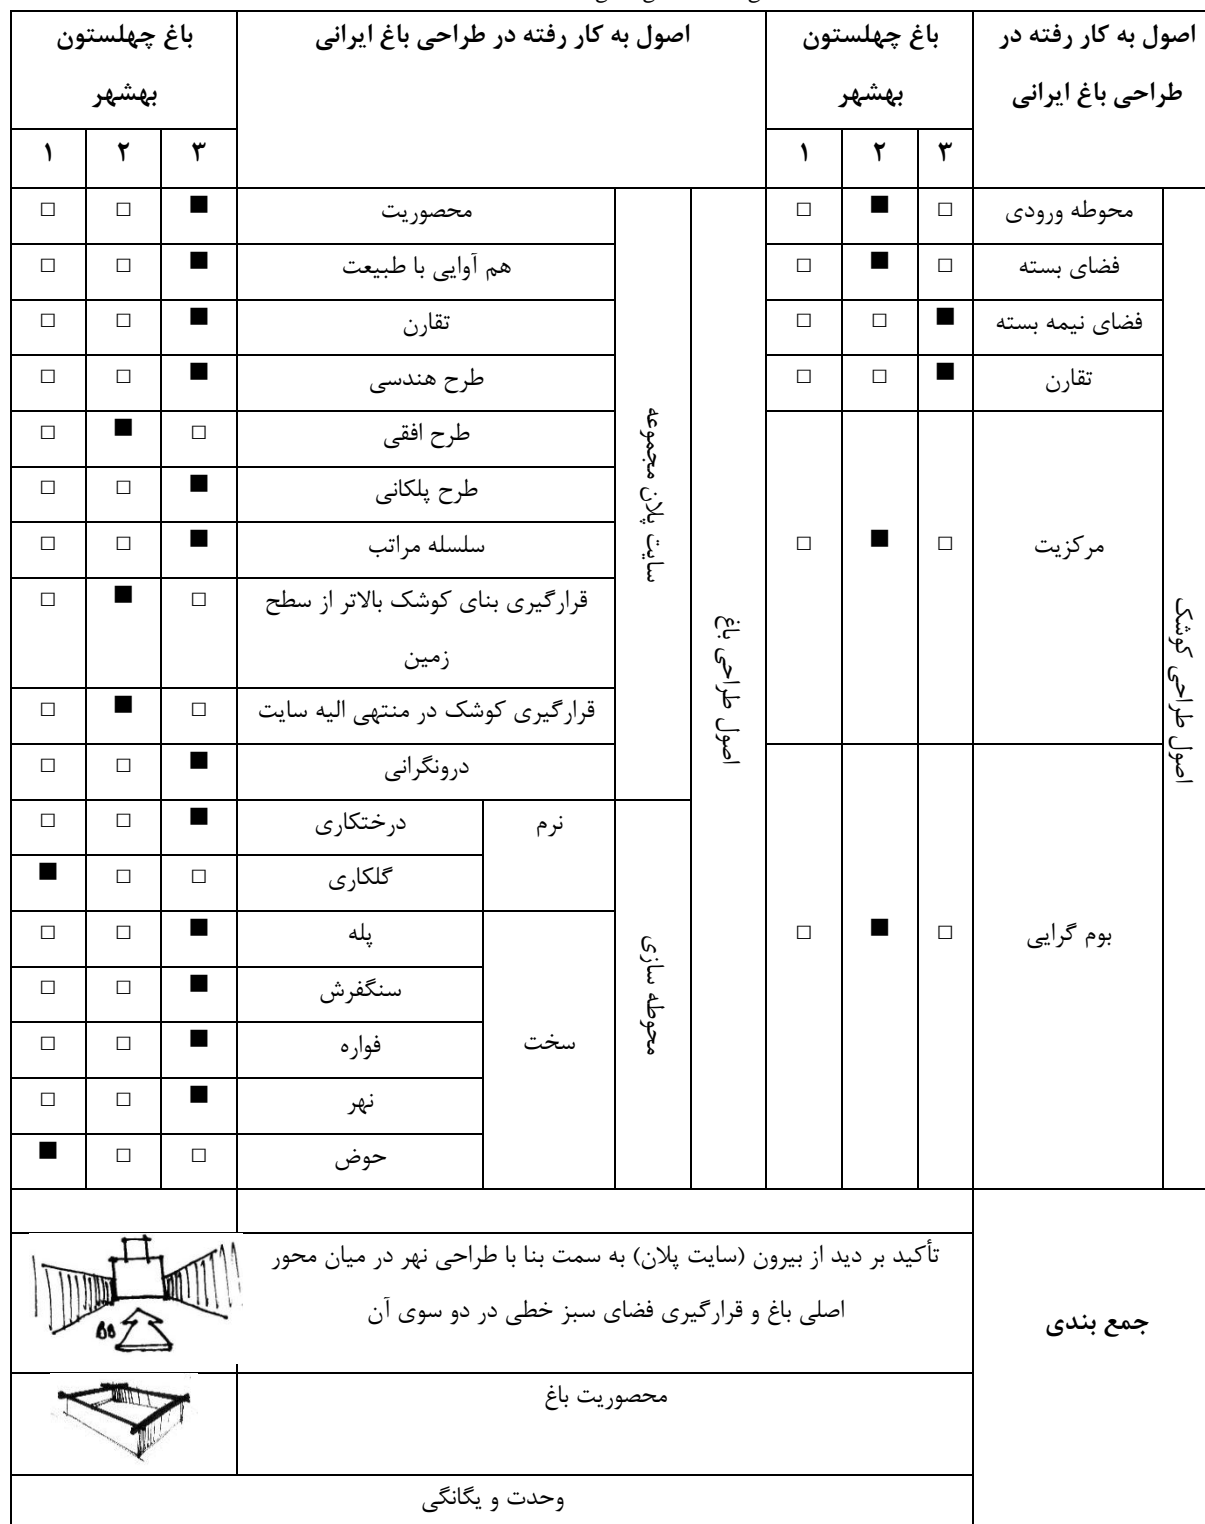 اصول به کار رفته در
طراحی باغ ایرانی
باغ چهلستون
بهشهر
اصول به کار رفته در طراحی باغ ایرانی
باغ چهلستون
بهشهر
۳ ۲ ۱
۳ ۲ ۱
اصول طراحی کوشک
محوطه ورودی □ ■ □
فضای بسته □ ■ □
فضای نیمه بسته ■ □ □
تقارن ■ □ □
مرکزیت □ ■ □
بوم گرایی □ ■ □
اصول طراحی باغ
سایت پلان مجموعه
محصوریت ■ □ □
هم آوایی با طبیعت ■ □ □
تقارن ■ □ □
طرح هندسی ■ □ □
طرح افقی □ ■ □
طرح پلکانی ■ □ □
سلسله مراتب ■ □ □
قرارگیری بنای کوشک بالاتر از سطح □ ■ □
زمین
قرارگیری کوشک در منتهی الیه سایت □ ■ □
درونگرانی ■ □ □
محوطه سازی
نرم
درختکاری ■ □ □
گلکاری □ □ ■
سخت
پله ■ □ □
سنگفرش ■ □ □
فواره ■ □ □
نهر ■ □ □
حوض □ □ ■
جمع بندی
تأکید بر دید از بیرون (سایت پلان) به سمت بنا با طراحی نهر در میان محور
اصلی باغ و قرارگیری فضای سبز خطی در دو سوی آن
محصوریت باغ
وحدت و یگانگی